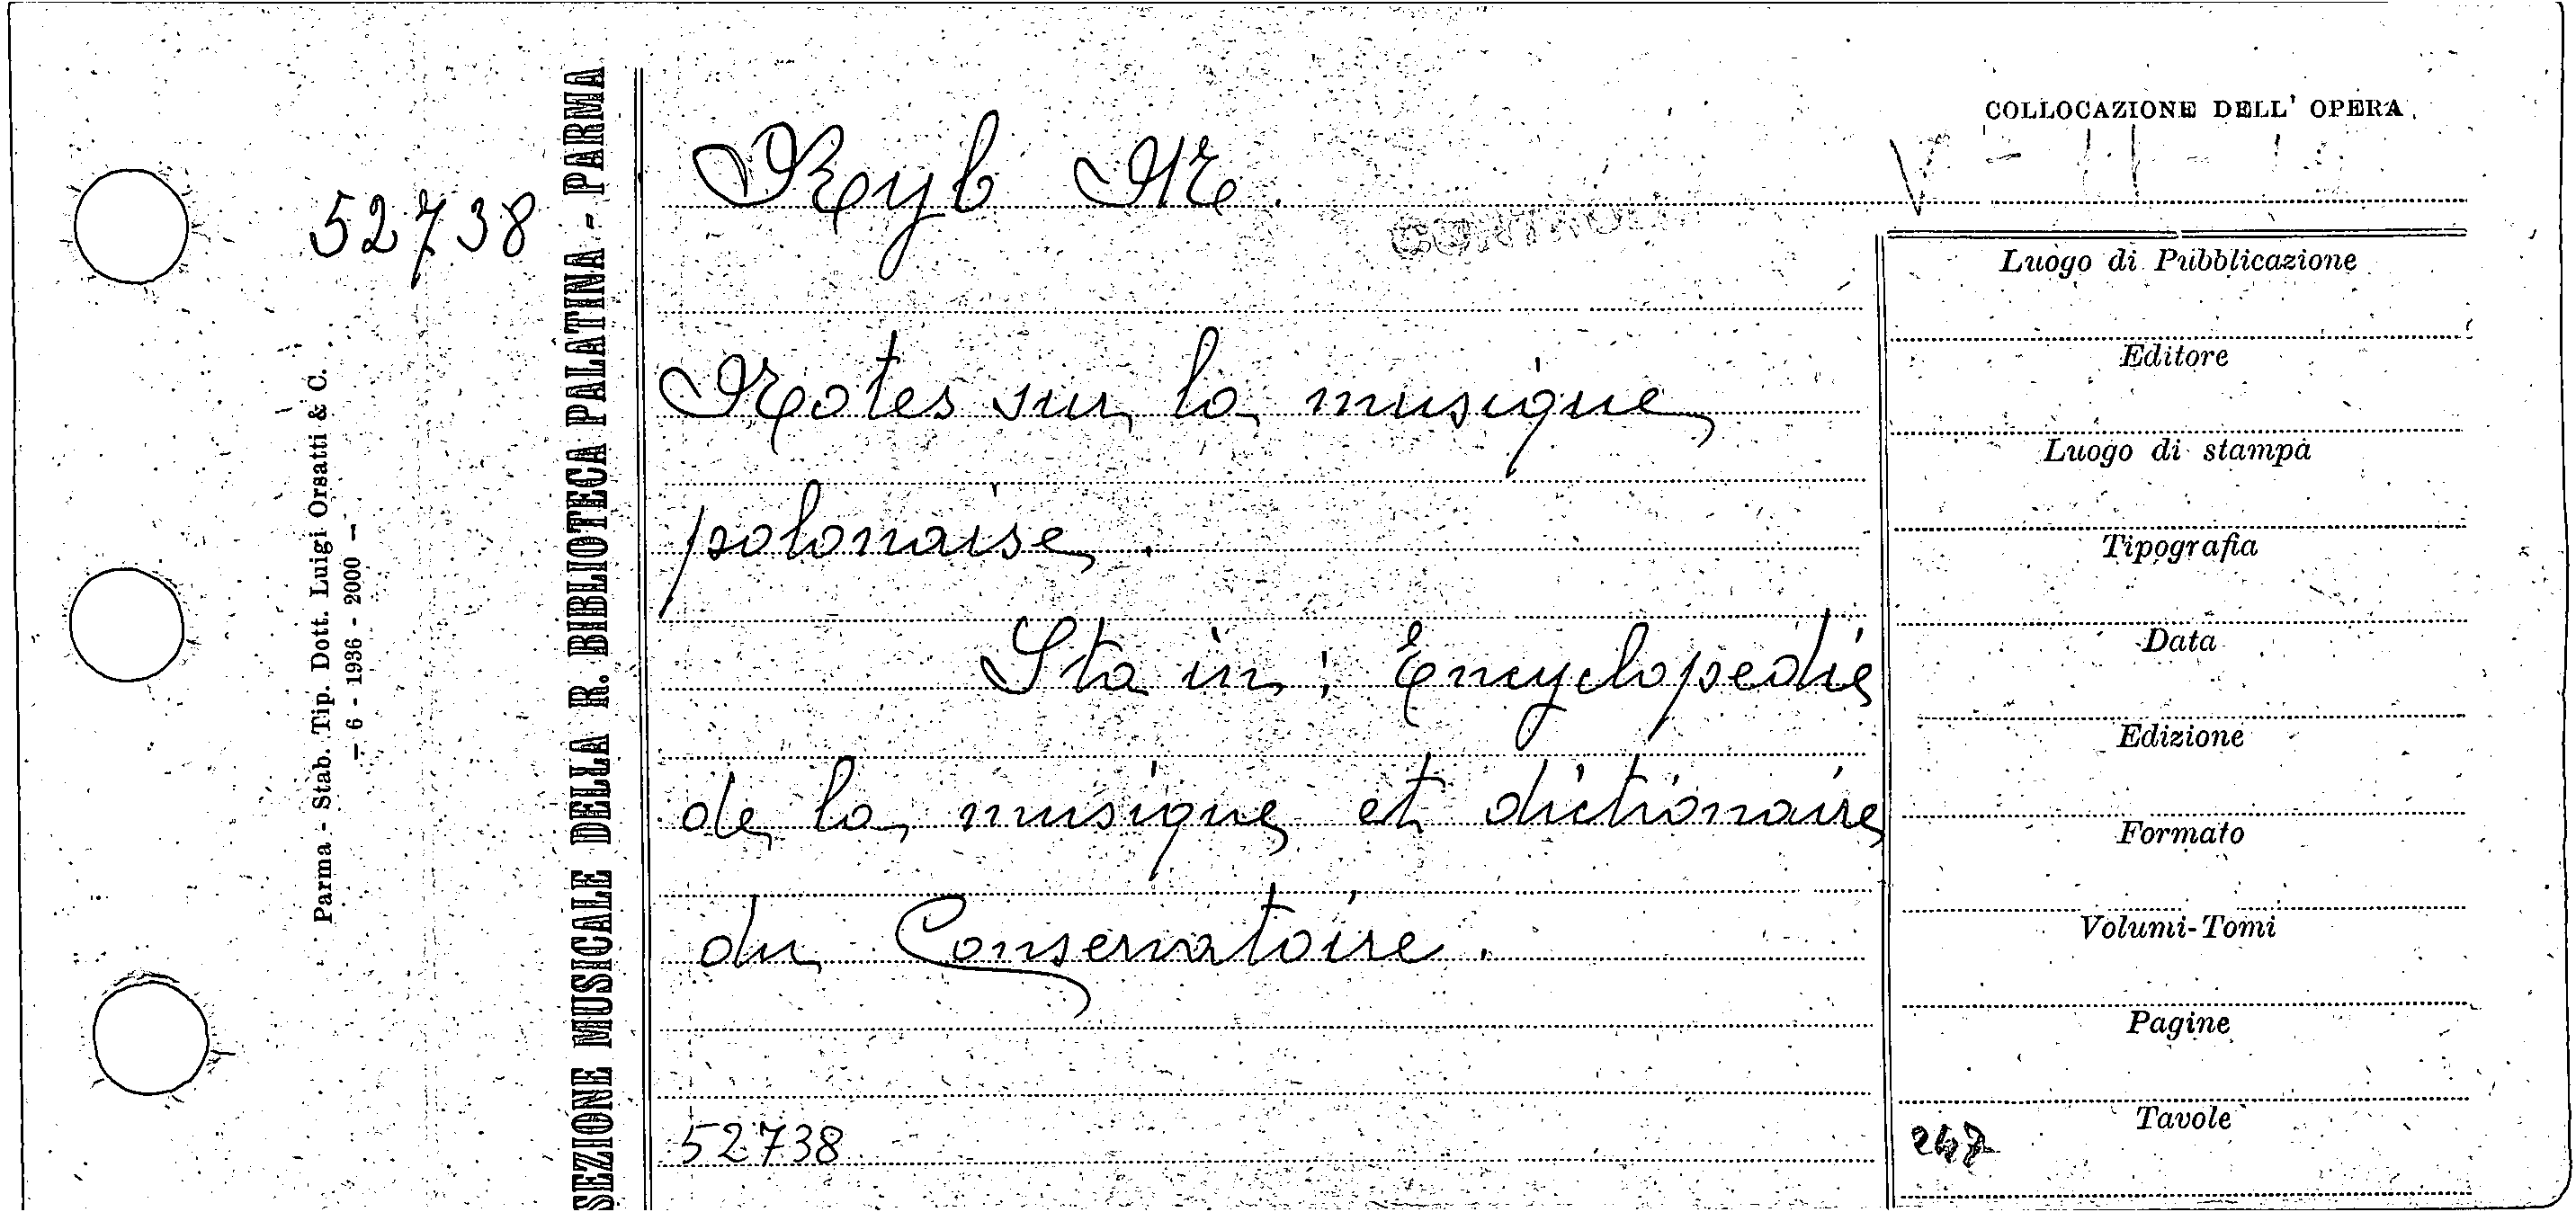 COLLOCAZIONE DELL' OPERA
52738
Notes sur la musique
polonaise.
Sta in: Encyclopedie
de la musique et dictionaire
du Conservatoire.
52738
Luogo di Pubblicazione
Editore
Luogo di stampa
Tipografia
Data
Edizione
Formato
Volumi-Tomi
Pagine
Tavole
247
SEZIONE MUSICALE DELLA R. BIBLIOTECA PALATINA - PARMA
Parma - Stab. Tip. Dott. Luigi Orsatti & C.
— 6 - 1936 - 2000 —